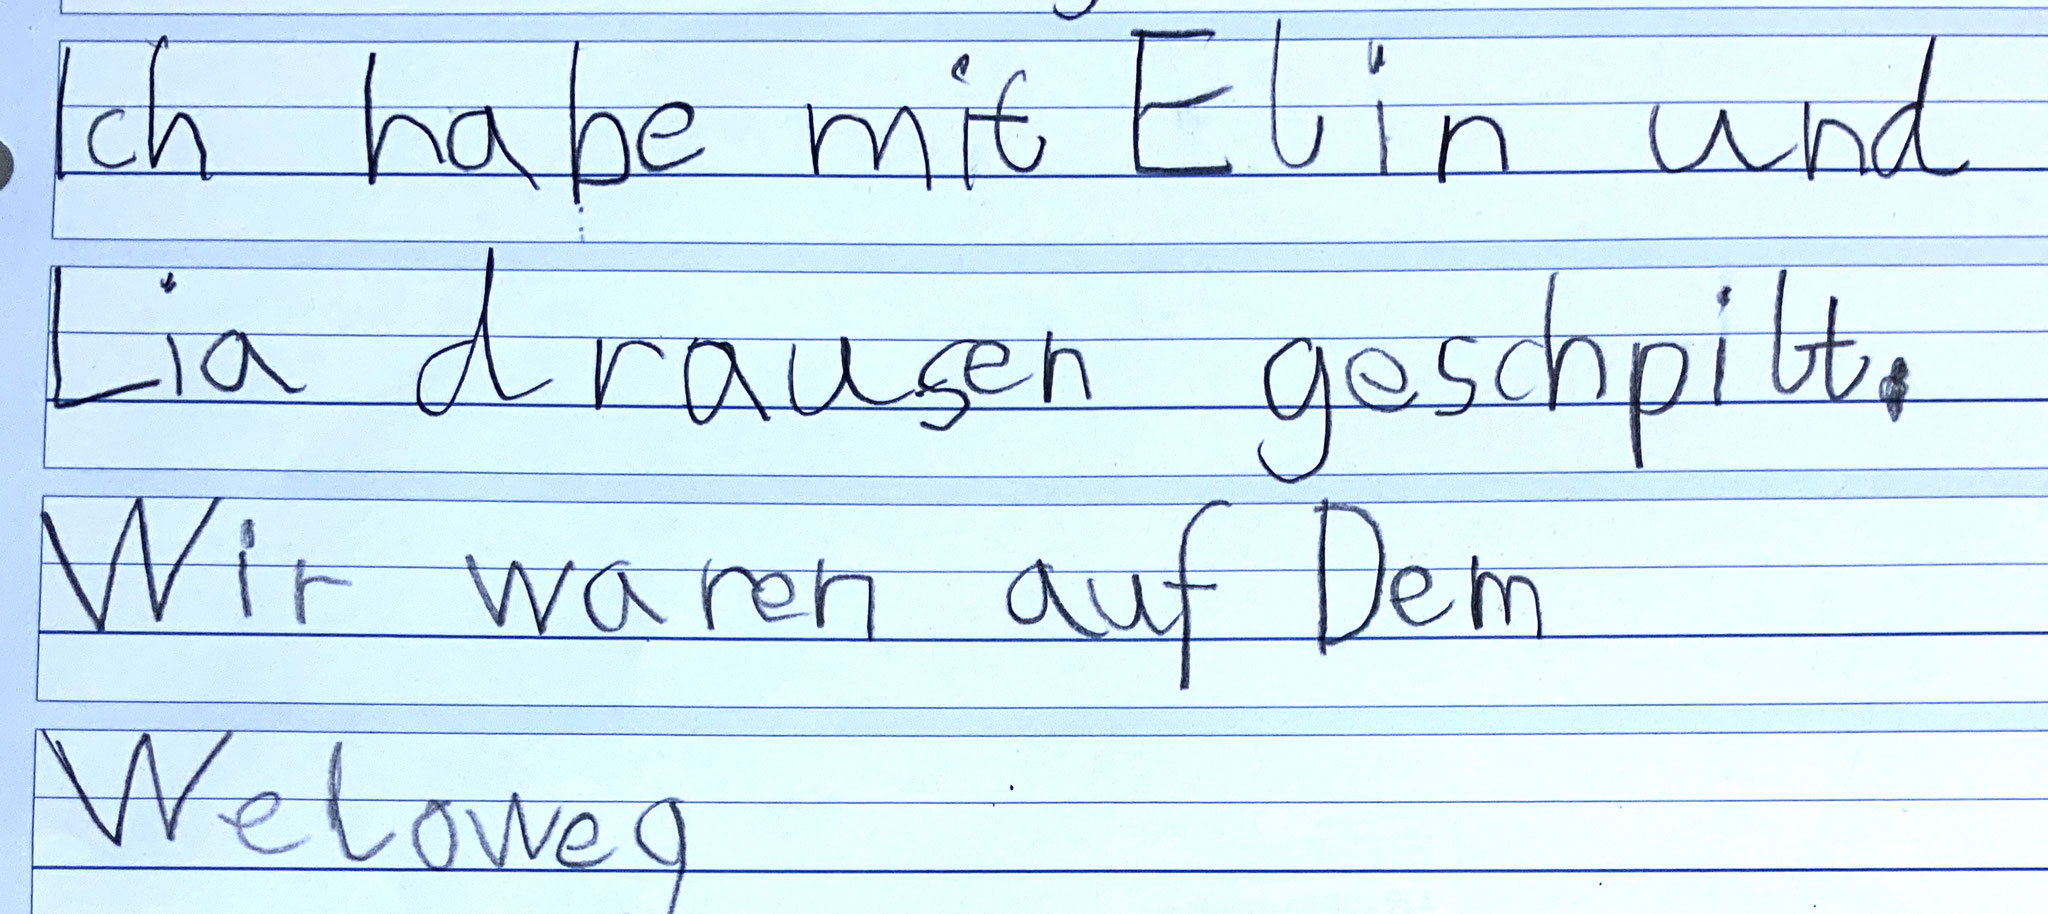 Ich habe mit Elin und
Lia drausen geschpilt.
Wir waren auf Dem
Weloweg